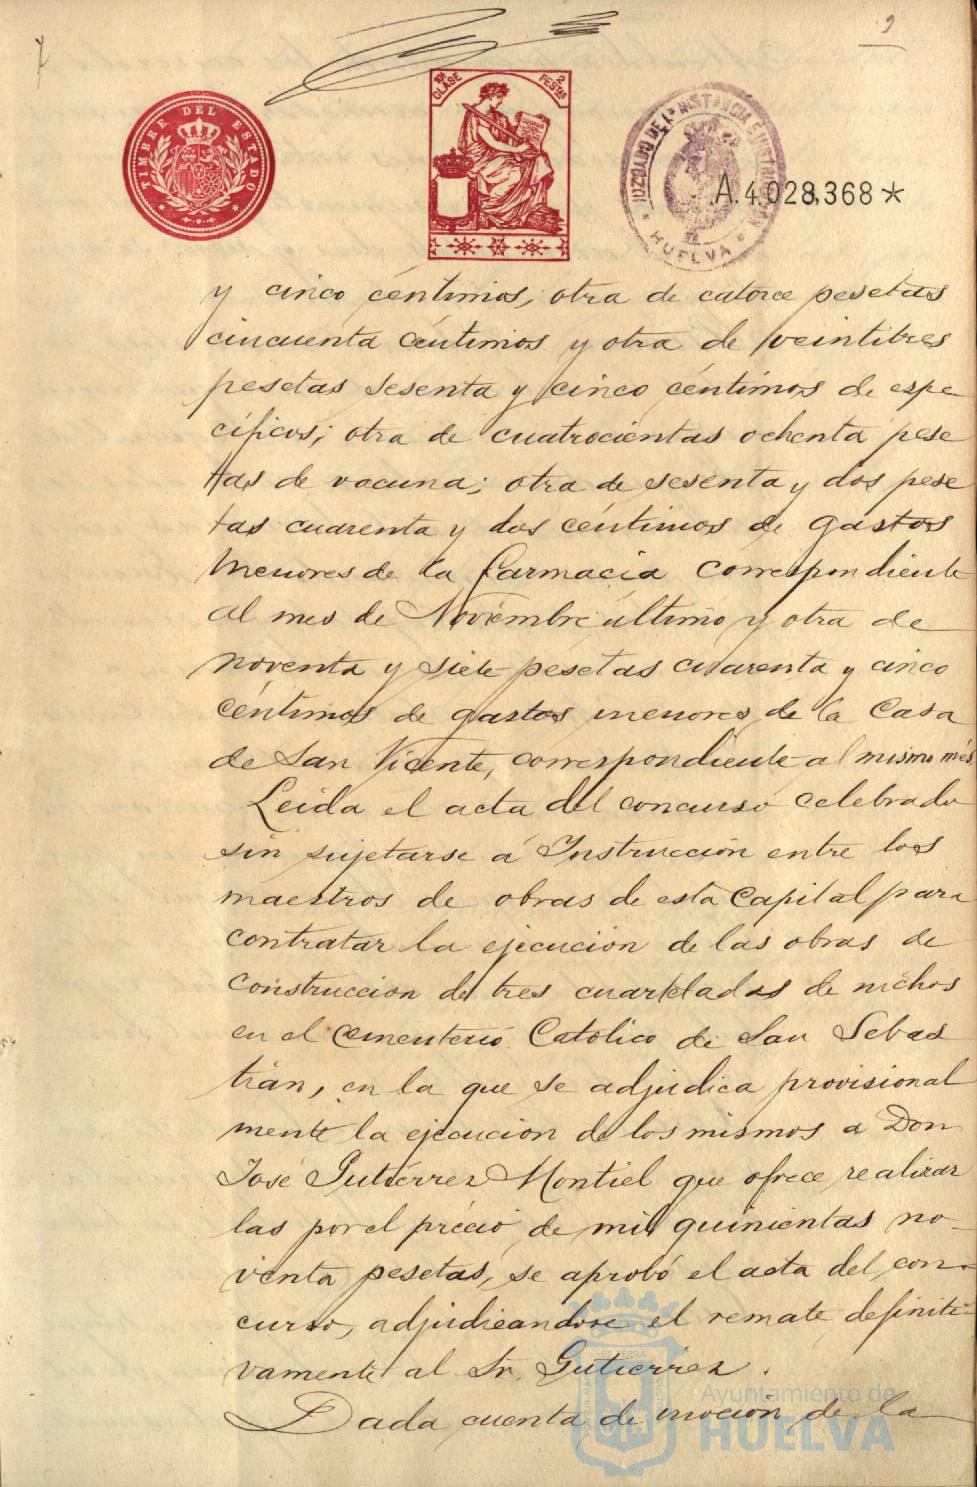 9
TIMBRE DEL ESTADO
10ª CLASE 2 PESTAS
JUZGADO DE 1ª INSTANCIA É INSTRUCCION
HUELVA
A.4.028,368*
y cinco céntimos; otra de catorce pesetas
cincuenta céntimos y otra de veintitres
pesetas sesenta y cinco céntimos de espe
cíficos; otra de cuatrocientas ochenta pese
tas de vacuna; otra de sesenta y dos pese
tas cuarenta y dos céntimos de gastos
menores de la farmacia correspondiente
al mes de Noviembre último y otra de
noventa y siete pesetas cuarenta y cinco
céntimos de gastos menores de la Casa
de San Vicente, correspondiente al mismo més.
Leida el acta del concurso celebrado
sin sujetarse á Instrucción entre los
maestros de obras de esta Capital para
contratar la ejecución de las obras de
construccion de tres cuarteladas de nichos
en el Cementerio Católico de San Sebas
tián, en la que se adjudica provisional
mente la ejecucion de los mismos a Don
José Gutiérrez Montiel que ofrece realizar
las por el précio de mil quinientas no-
venta pesetas, se aprobó el acta del con-
curso, adjudicandose el remate definiti-
vamente al Sr. Gutierrez.
Dada cuenta de moción de la
Ayuntamiento de
HUELVA